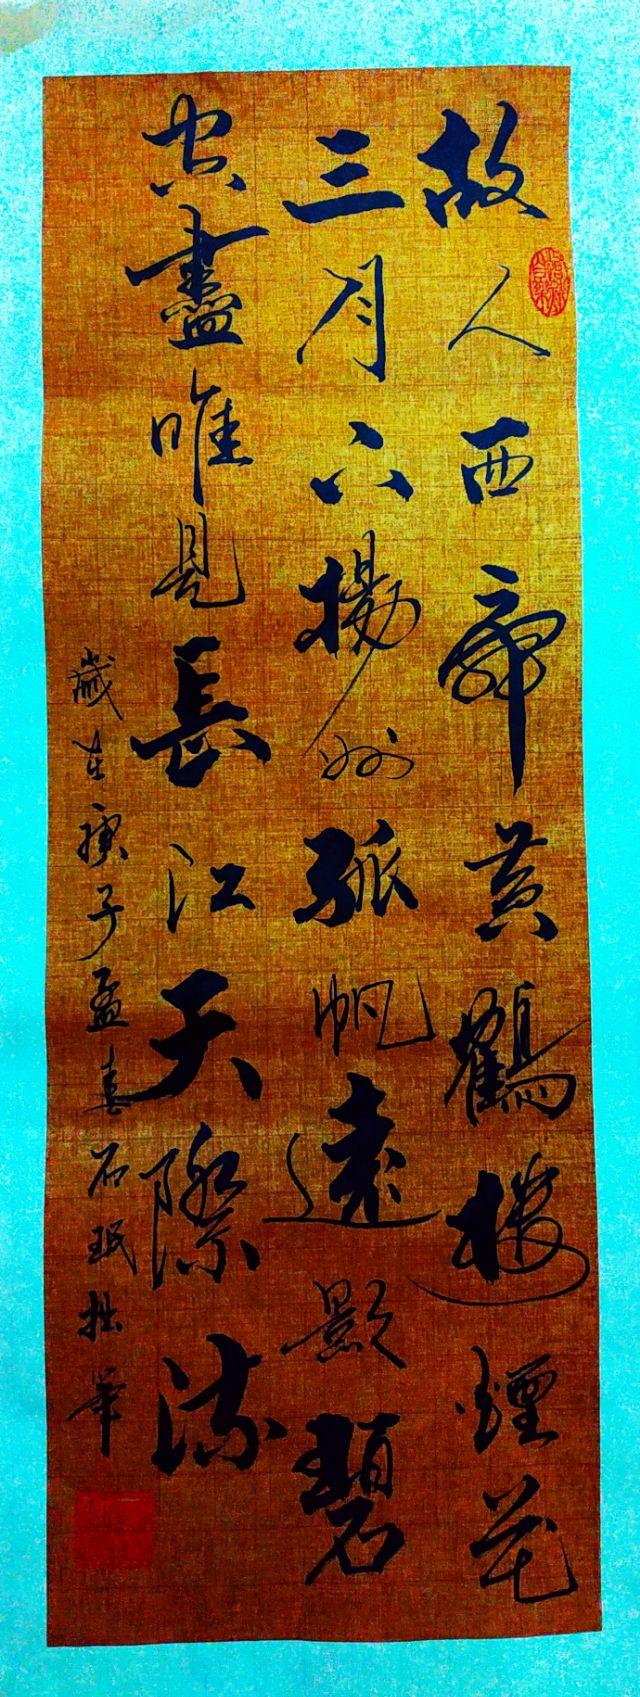 故人西辭黃鶴樓煙花
三月下揚州孤帆遠影碧
空盡唯見長江天際流
歲在庚子孟春石珉拙筆